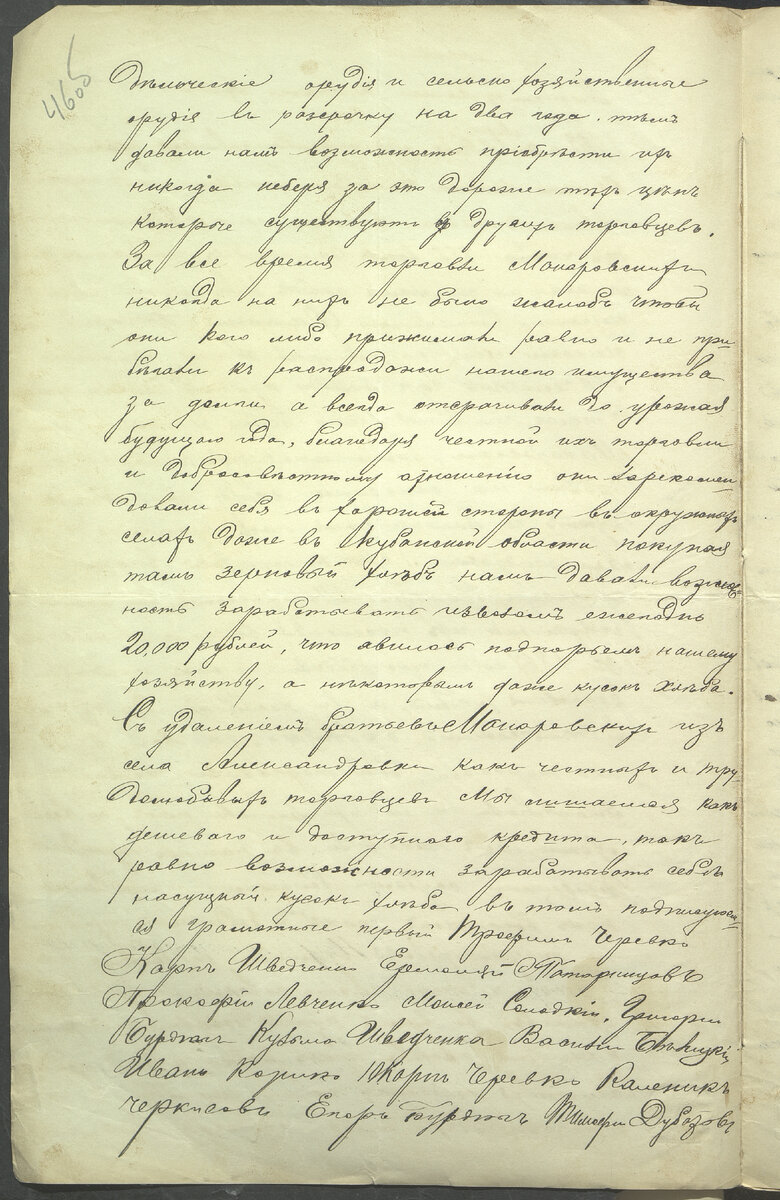 460об
дѣльческіе орудія и сельско хозяйственные
орудія въ розсрочку на два года. тѣмъ
давали намъ возможность пріобрѣсти ихъ
никогда неберя за это дороже тѣхъ цѣнъ
которые существуютъ у другихъ торговцевъ.
За все время торговли Макаровскихъ
никогда на нихъ не было жалобъ чтобы
они кого либо прижимали равно и не при=
бѣгали къ распродажи нашего имущества
за долги а всегда отсрачивали до урожая
будущаго года, благодаря честной ихъ торговли
и добросовѣстному отношенію они зарекомен=
довали себя въ хорошей стороны въ окружныхъ
селахъ даже въ Кубанской области покупая
тамъ зерновый хлѣбъ намъ давали возмож=
ность зарабатывать извозомъ ежегодно
20,000 рублей, что явилось подпорьемъ нашему
хозяйству, а нѣкоторымъ даже кусокъ хлѣба.
Съ удаленіемъ братьевъ Макаровскихъ изъ
села Александровки какъ честныхъ и тру=
долюбивыхъ торговцевъ мы лишаемся какъ
дешеваго и доступнаго кредита, такъ
равно возможности зарабатывать себѣ
насущный кусокъ хлѣба въ томъ подписуем=
ся грамотные первый Трофимъ Черевко
Карпъ Шведченко Еремѣй
Прокофій Левченко Моисей Солодкій, Григорій
Бурджъ Кузьма Шведченко Василій Бѣлицкій
Иванъ Корико Карпъ Черевко Каленикъ
Черкасовъ Егоръ Бурджъ Тимофій